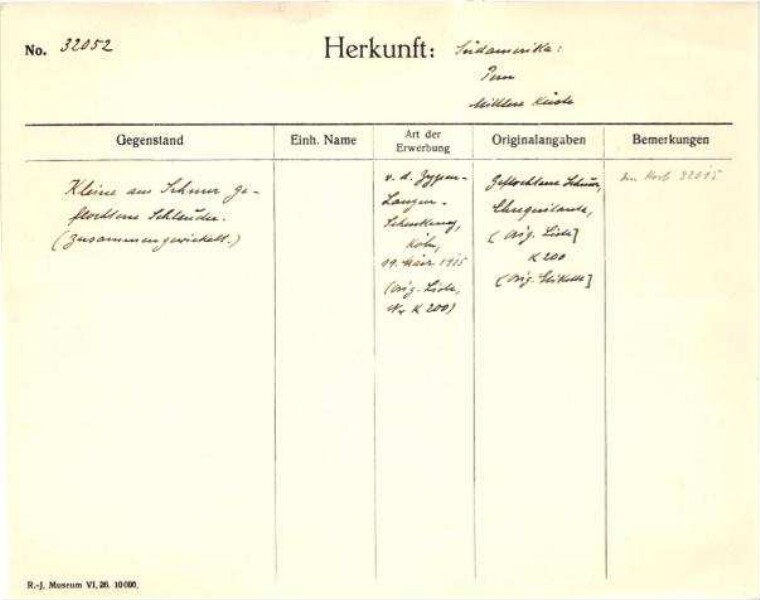 No. 32052
Herkunft: Südamerika:
Peru
Mittlere Küste
Gegenstand
Einh. Name
Art der
Erwerbung
Originalangaben
Bemerkungen
Kleine aus Schnur ge-
flochtene Schleuder.
(Zusammengewickelt.)
v. d. Zypen-
Langen-
Schenkung,
Köln,
März 1915
(Orig. Liste,
Nr K 200)
Geflochtene Schnur,
(Orig. Liste]
K 200
(Orig. Etikette]
Im Korb 32015
R.-J. Museum VI. 26. 10000.